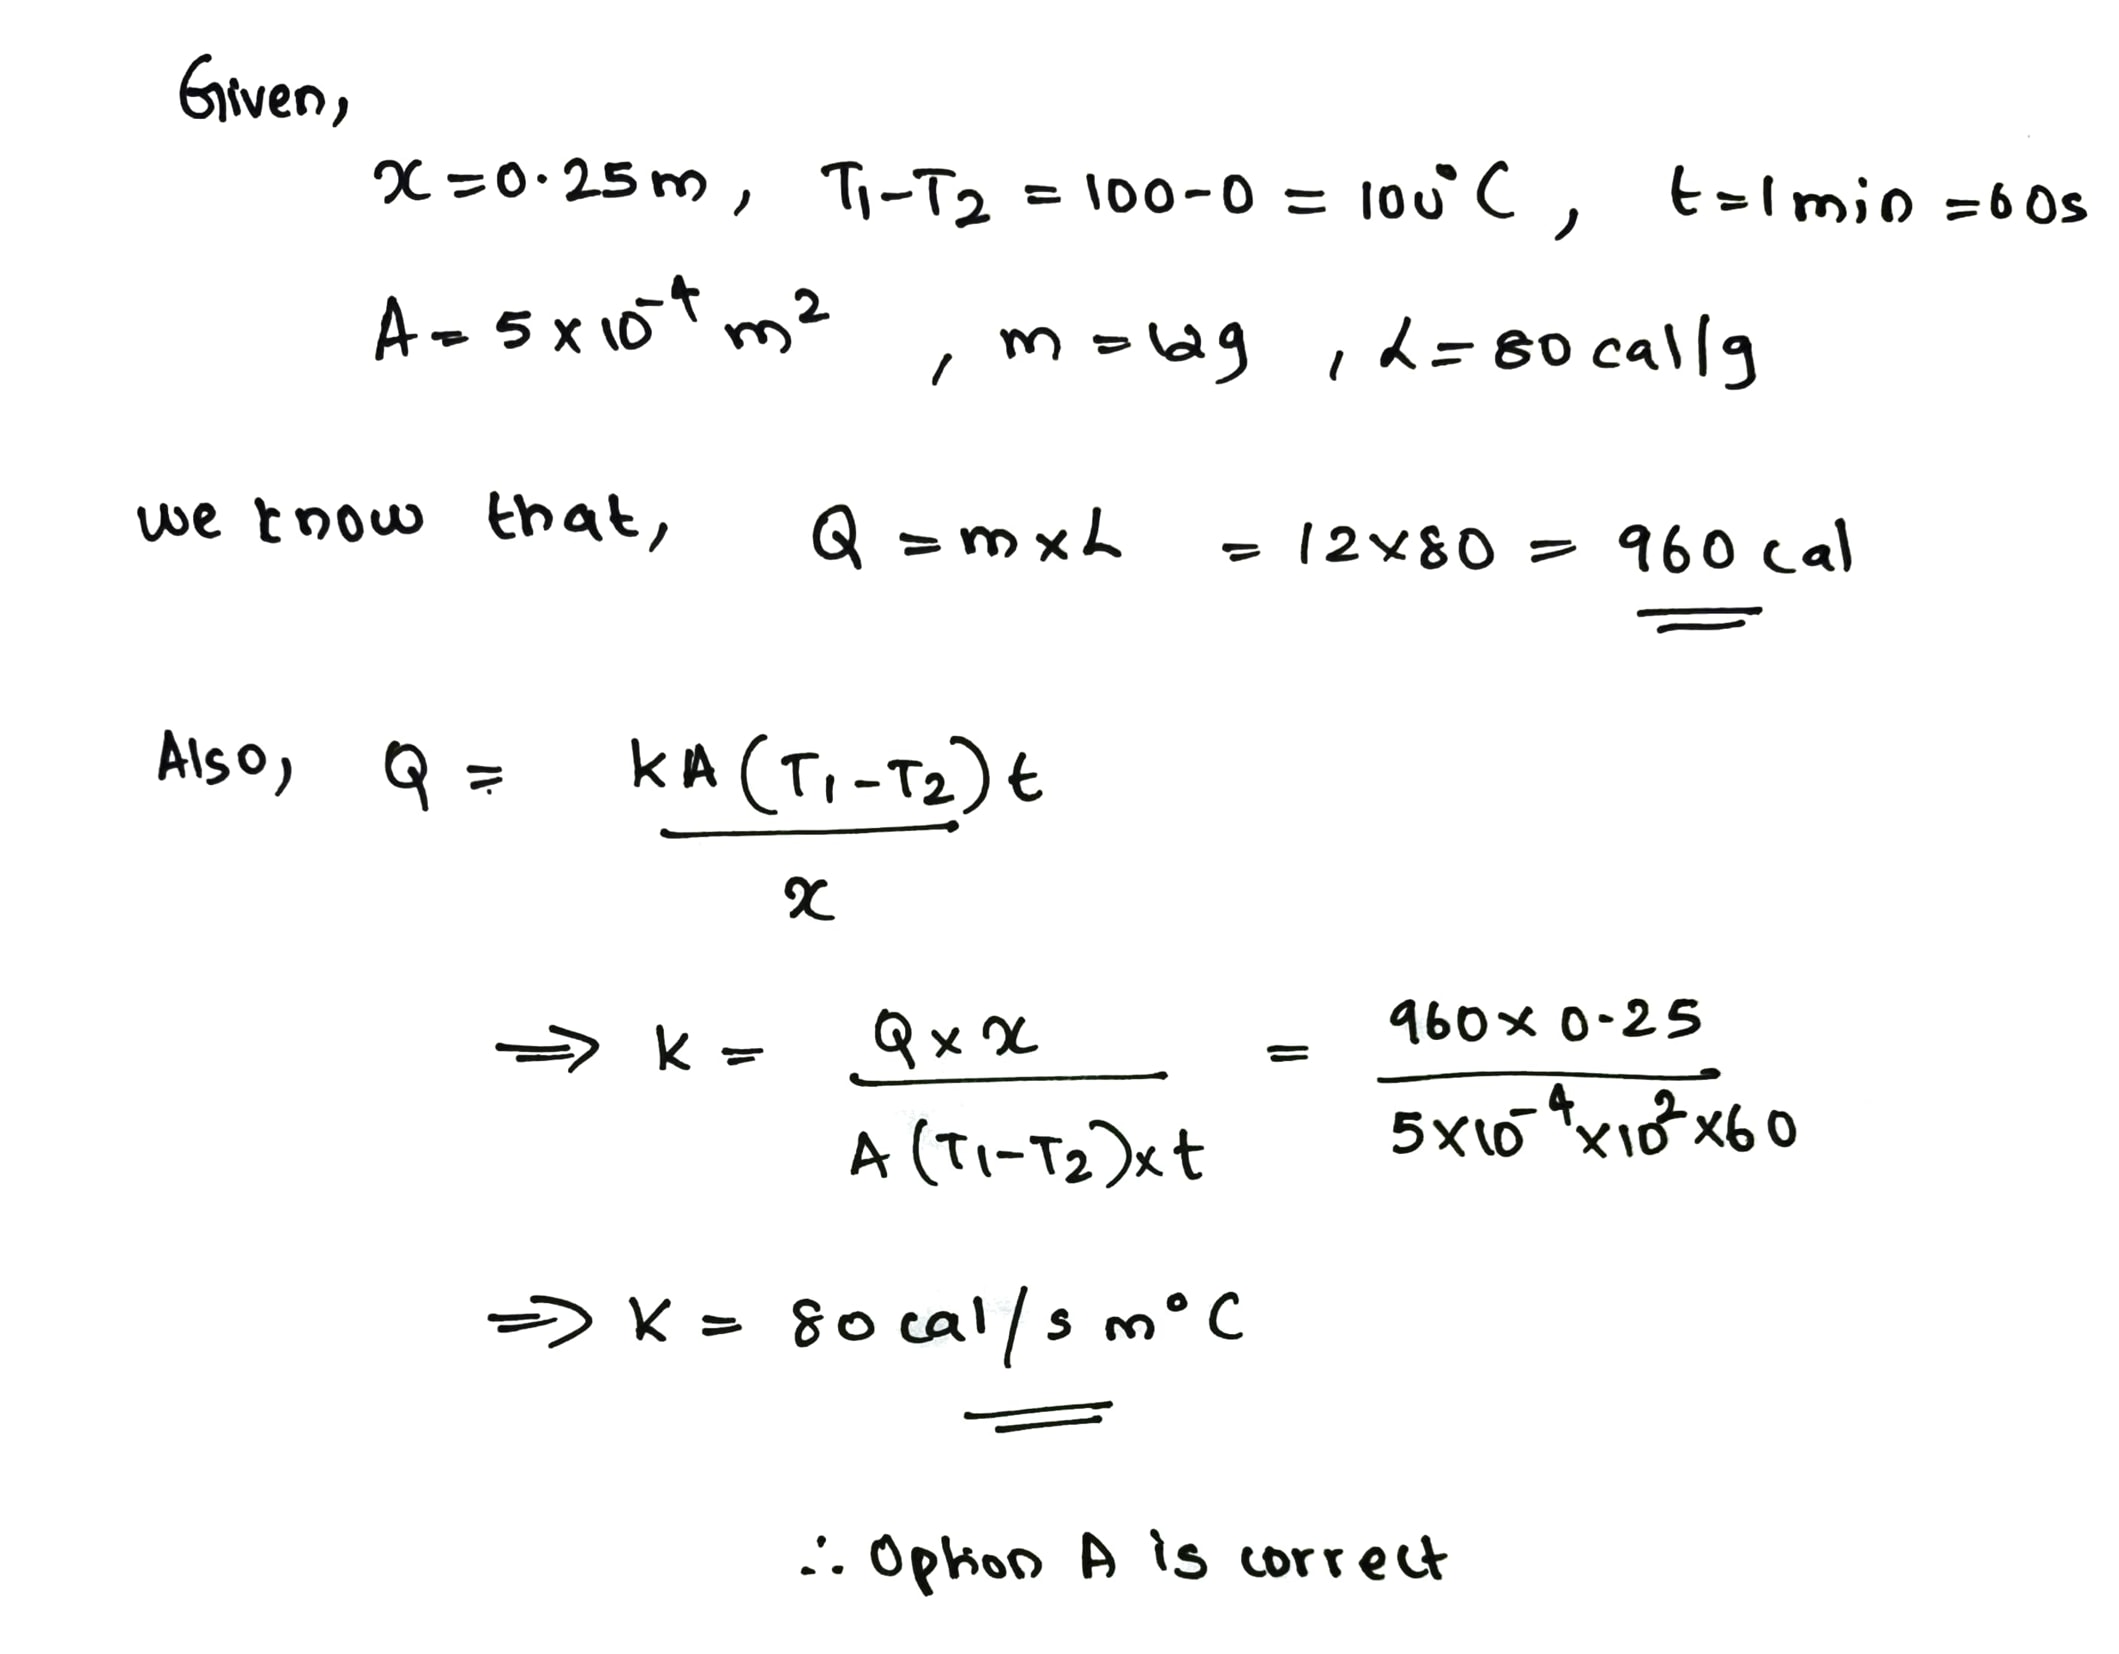 Given,
x = 0.25m, T₁-T₂ = 100-0 = 100°C, t=1min=60s
A = 5x10⁻⁴ m², m = 12g, L = 80 cal/g
we know that, Q = m x L = 12x80 = 960 cal
Also, Q = KA(T₁-T₂)t
x
⇒ K = Q x x = 960 x 0.25
A(T₁-T₂)xt 5x10⁻⁴x10²x60
⇒ K = 80 cal/s m°C
∴ Option A is correct